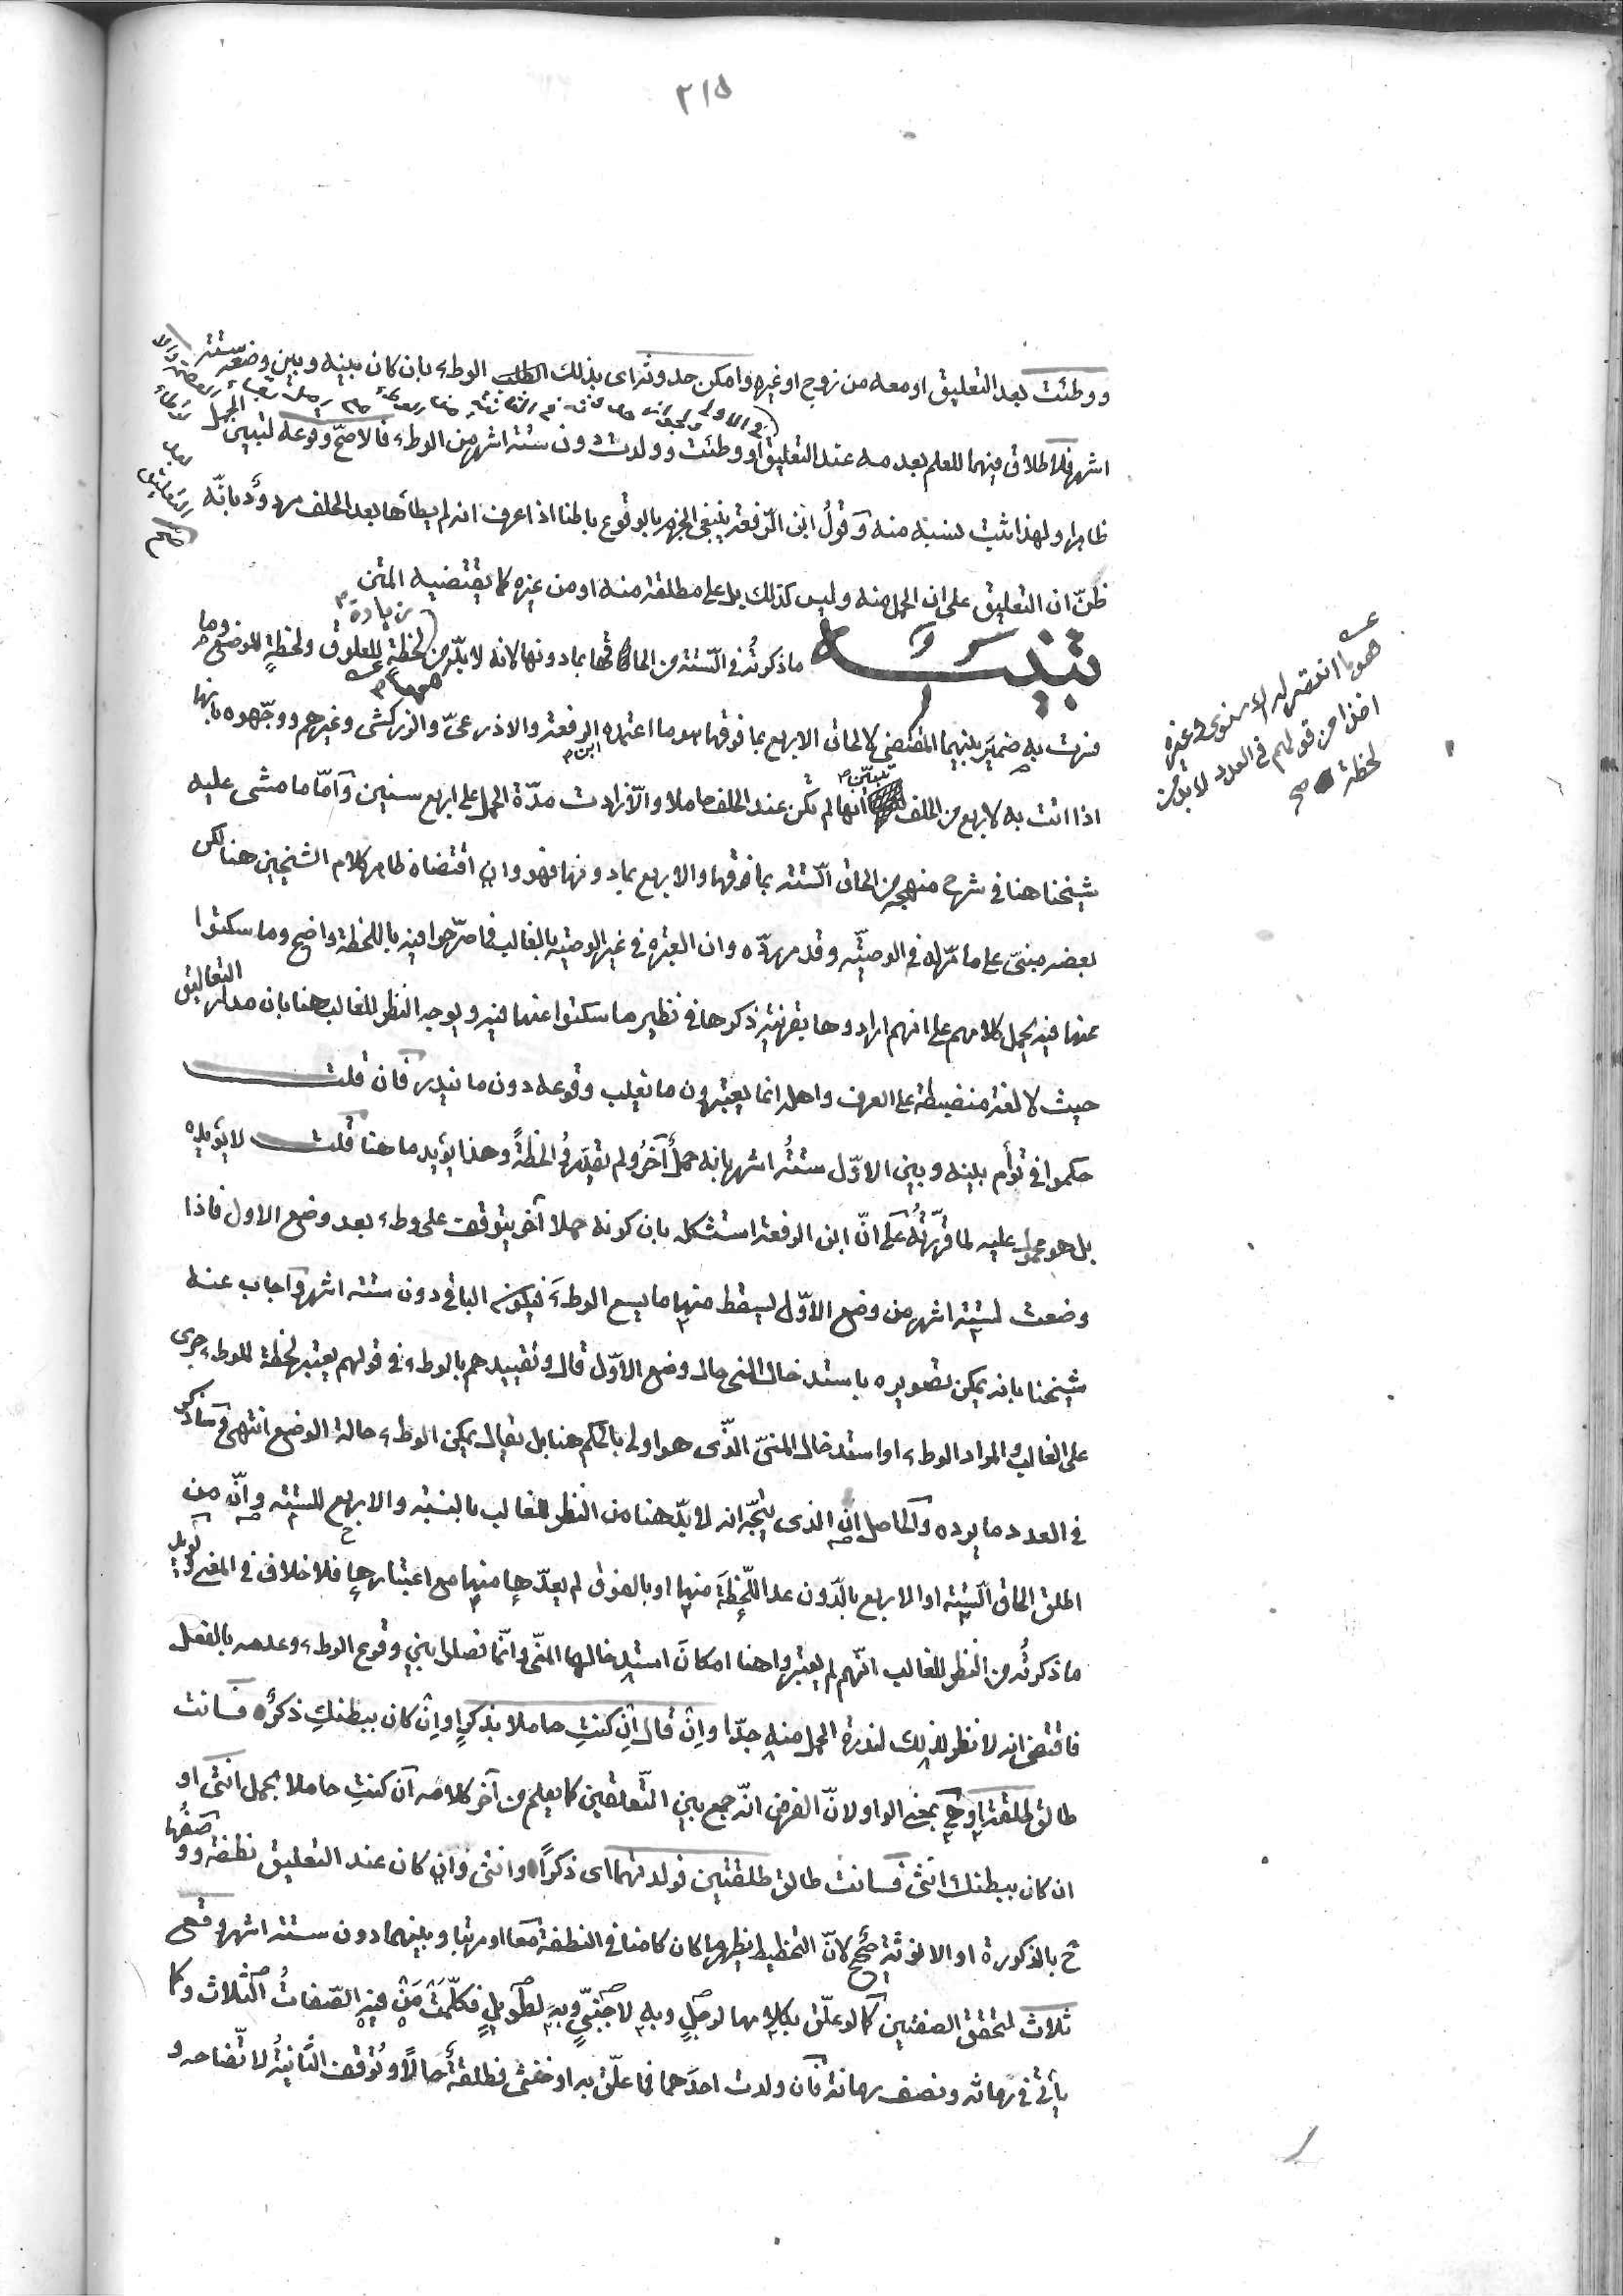 ٢١٥
ووطئت بعد التعليق او معه من زوج او غيره وامكن حدوثه اى بذلك الوطء بان كان بينه وبين وضعه ستة
اشهر فلا طلاق فيهما للعلم بعدمه عند التعليق او ووطئت وولدت دون ستة اشهر من الوطء فالاصح وقوعه لتبين الحمل
ظاهرا ولهذا ثبت نسبه منه وقول ابن الرفعة ينبغى الجزم بالوقوع باطنا اذا عرف انه لم يطأها بعد الحلف مردود بانه
ظن ان التعليق على ان الحمل منه وليس كذلك بل على مطلقه منه او من غيره كما يقتضيه المتن
تنبيه ما ذكرته فى الستة من الحاقها بما دونها لانه لا بد من لحظة للعلوق ولحظة للوضع وما
من زيادة
فرت به ضمير بينهما المقتضى لالحاق الاربع بما فوقها هو ما اعتمده ابن الرفعة والاذرعى والزركشى وغيرهم ووجهوه بانها
اذا اتت به لاربع من الحلف تبين انها لم تكن عند الحلف حاملا والا زادت مدة الحمل على اربع سنين واما ما مشى عليه
شيخنا هنا فى شرح منهجه من الحاق الستة بما فوقها والاربع بما دونها فهو وان اقتضاه ظاهر كلام الشيخين هنا لكن
بعضه مبنى على ما مر له فى الوصية وقد مر رده وان العبرة فى غير الوصية بالغالب فما صرحوا فيه باللحظة واضح وما سكتوا
عنها فيه يحمل كلامهم على انهم ارادوها بقرينة ذكرها فى نظير ما سكتوا عنها فيه ويوجه النظر للغالب هنا بان مدار التعاليق
حيث لا لغة منضبطة على العرف واهله انما يعتبرون ما يغلب وقوعه دون ما يندر فان قلت
حكموا فى توأم بينه وبين الاول ستة اشهر بانه حمل آخر ولم يقدروا لحظة وهذا يؤيد ما هنا قلت لا يؤيده
بل هو محمول عليه لما قررته على ان ابن الرفعة استشكله بان كونه حملا آخر يتوقف على وطء بعد وضع الاول فاذا
وضعت لستة اشهر من وضع الاول يسقط منها ما يسع الوطء فيكون الباقى دون ستة اشهر واجاب عنه
شيخنا بانه يمكن تصويره باستدخال المنى حال وضع الاول قال وتقييدهم بالوطء فى قولهم يعتبر لحظة للوطء جرى
على الغالب والمراد الوطء او استدخال المنى الذى هو اولى بالحكم هنا بل يقال يمكن الوطء حالة الوضع انتهى وسأذكر
فى العدد ما يرده والحاصل ان الذى يتجه انه لا بد هنا من النظر للغالب بالنسبة والاربع للستة وان من
اطلق الحاق الستة او الاربع بالدون عد اللحظة منها او بالفوق لم يعدها منها مع اعتبارها فلا خلاف فى المعنى ويؤيد
ما ذكرته من النظر للغالب انهم لم يعتبروا هنا امكان استدخالها المنى وانما فصلوا بين وقوع الوطء وعدمه بالفعل
فاقتضى انه لا نظر لذلك لندرة الحمل منه جدا وان قال ان كنت حاملا بذكر او ان كان ببطنك ذكر فانت
طالق طلقة او هى بمعنى الواو لان الفرض انه جمع بين التعليقين كما يعلم من آخر كلامه ان كنت حاملا بحمل انثى او
ان كان ببطنك انثى فانت طالق طلقتين فولدتهما اى ذكرا وانثى وان كان عند التعليق نطفة ووصفها
ح بالذكورة او الانوثة صحيح لان التخطيط يظهر ما كان كامنا فى النطفة معا او مرتبا وبينهما دون ستة اشهر وقعن
ثلاث لتحقق الصفتين كما لو علق بكلامها لرجل وبه لاجنبى وبه لطويل فكلمت من فيه الصفات الثلاث وكما
يأتى فى رمانة ونصف رمانة فان ولدت احدهما فما علق به او خنثى فطلقة حالا وتوقف الثانية لاتضاحه و
هو ما انتصر له الاسنوى وغيره
اخذا من قولهم فى العدد لا بد من
لحظة صح